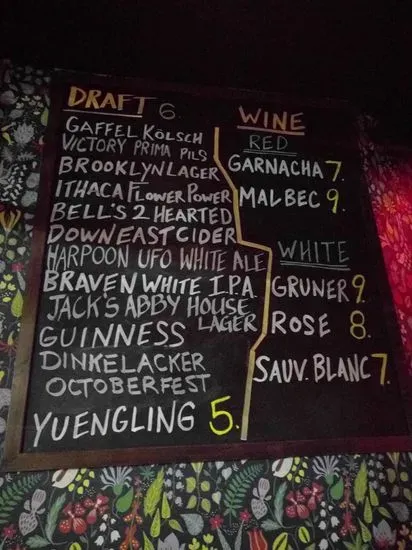 DRAFT 6.
GAFFEL KÖLSCH
VICTORY PRIMA PILS
BROOKLYN LAGER
ITHACA FLOWER POWER
BELL'S 2 HEARTED
DOWNEAST CIDER
HARPOON UFO WHITE ALE
BRAVEN WHITE I.P.A
JACK'S ABBY HOUSE
LAGER
GUINNESS
DINKELACKER
OCTOBERFEST
YUENGLING 5.
WINE
RED
GARNACHA 7.
MALBEC 9.
WHITE
GRUNER 9.
ROSE 8.
SAUV. BLANC 7.